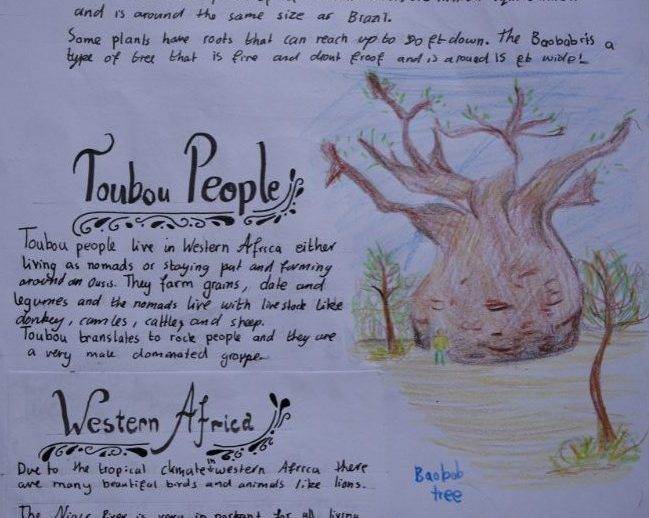 and is around the same size as Brazil.
Some plants have roots that can reach up to 50 ft down. The Baobab is a
type of tree that is fire and drout froof and is around 15 ft wide!
Toubou People
Toubou people live in Western Africa either
living as nomads or staying put and farming
around an Oasis. They farm grains, date and
legumes and the nomads live with livestock like
donkey, camles, cattley and sheep.
Toubou translates to rock people and they are
a very male domanated groppe.
Western Africa
Due to the tropical climate in western Africa there
are many beautiful birds and animals like lions.
The Niger River is very important for all living
Baobab
tree